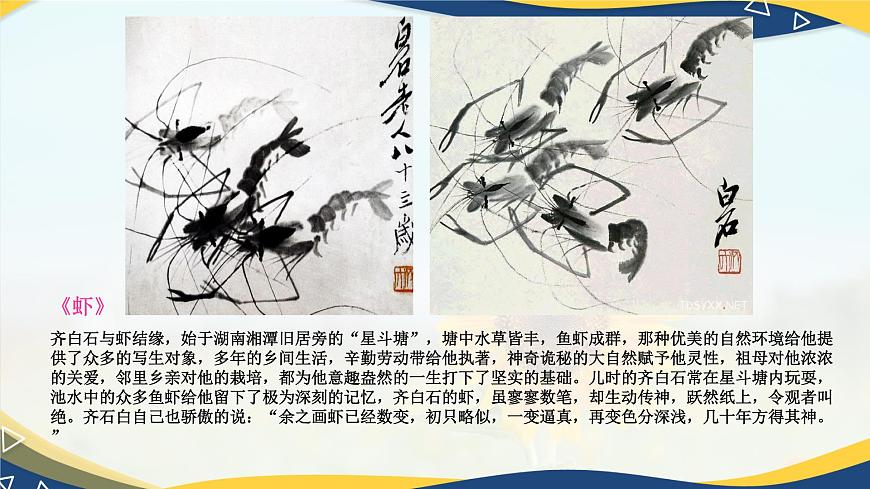 白石老人八十三岁
白石
TUSYXX.NET
《虾》
齐白石与虾结缘，始于湖南湘潭旧居旁的“星斗塘”，塘中水草皆丰，鱼虾成群，那种优美的自然环境给他提
供了众多的写生对象，多年的乡间生活，辛勤劳动带给他执著，神奇诡秘的大自然赋予他灵性，祖母对他浓浓
的关爱，邻里乡亲对他的栽培，都为他意趣盎然的一生打下了坚实的基础。儿时的齐白石常在星斗塘内玩耍，
池水中的众多鱼虾给他留下了极为深刻的记忆，齐白石的虾，虽寥寥数笔，却生动传神，跃然纸上，令观者叫
绝。齐石白自己也骄傲的说：“余之画虾已经数变，初只略似，一变逼真，再变色分深浅，几十年方得其神。
”